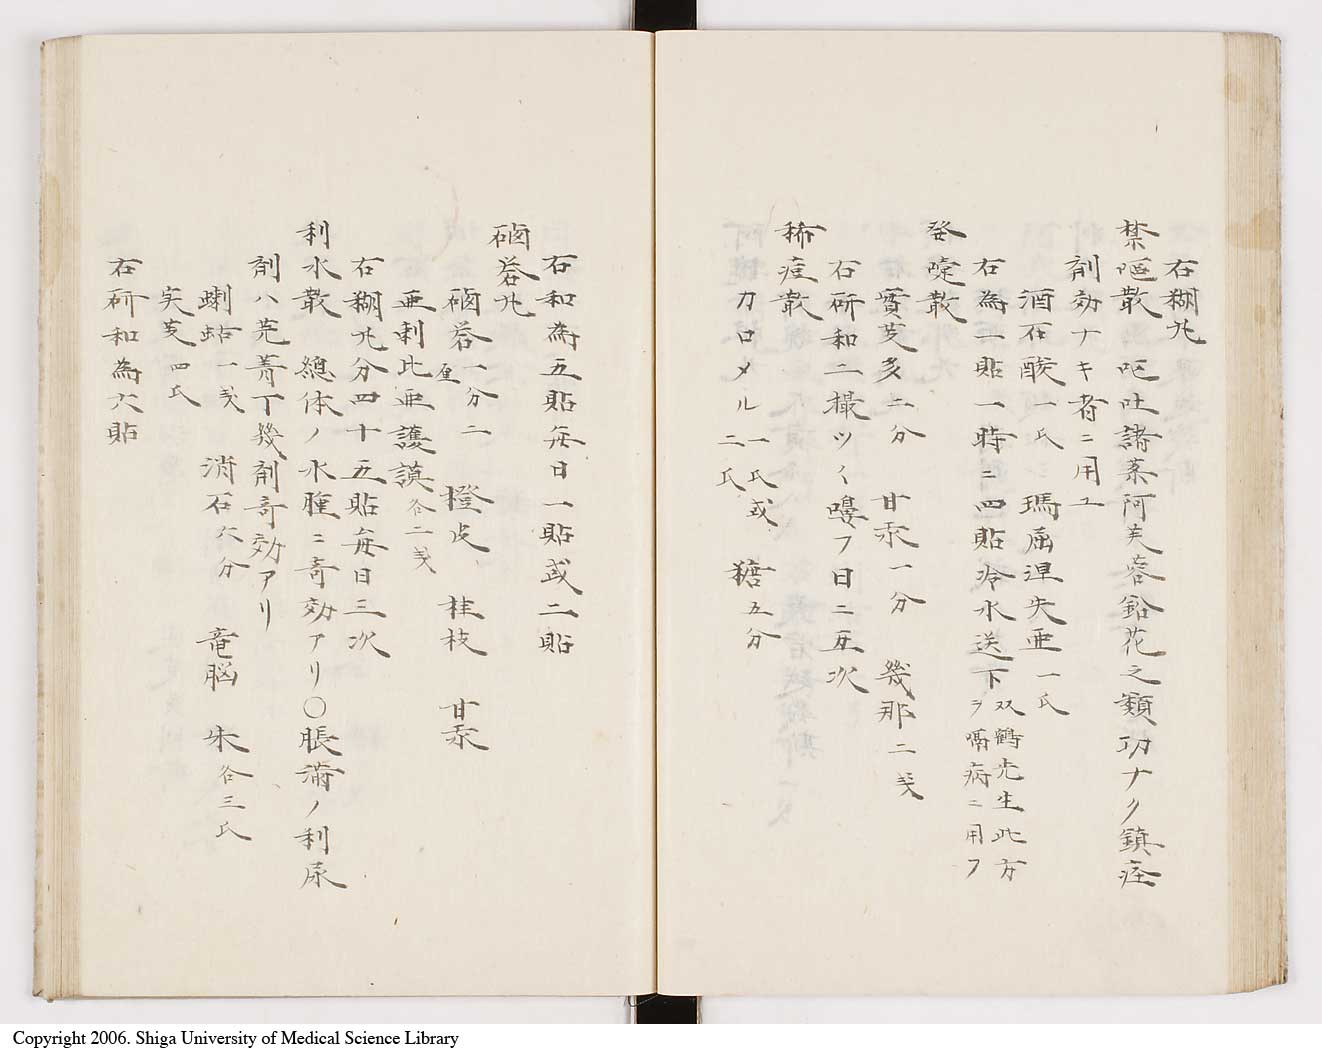 右糊丸
禁嘔散 嘔吐諸薬阿芙蓉鉛花之類功ナク鎮痙
剤効ナキ者ニ用ユ
酒石酸一氏 瑪屈涅失亜一氏
右為一貼一時ニ四貼冷水送下 双鶴先生此方
ヲ嗝病ニ用フ
発嚏散
甘汞一分 幾那二戔
右研和二撮ツヽ嚊フ日ニ五次
稀痘散
カロメル 一氏或
二氏 糖五分
右和為五貼毎日一貼或二貼
硇砦丸
硇砦一分二厘 橙皮 桂枝 甘汞
亜刺比亜護謨各二戔
右糊丸分四十五貼毎日三次
利水散 総体ノ水腫ニ奇効アリ〇脹満ノ利尿
剤八芫菁丁幾剤奇効アリ
蝲蛄一戔 消石六分 竜脳 朱各三氏
実芰四氏
右研和為六貼
Copyright 2006. Shiga University of Medical Science Library